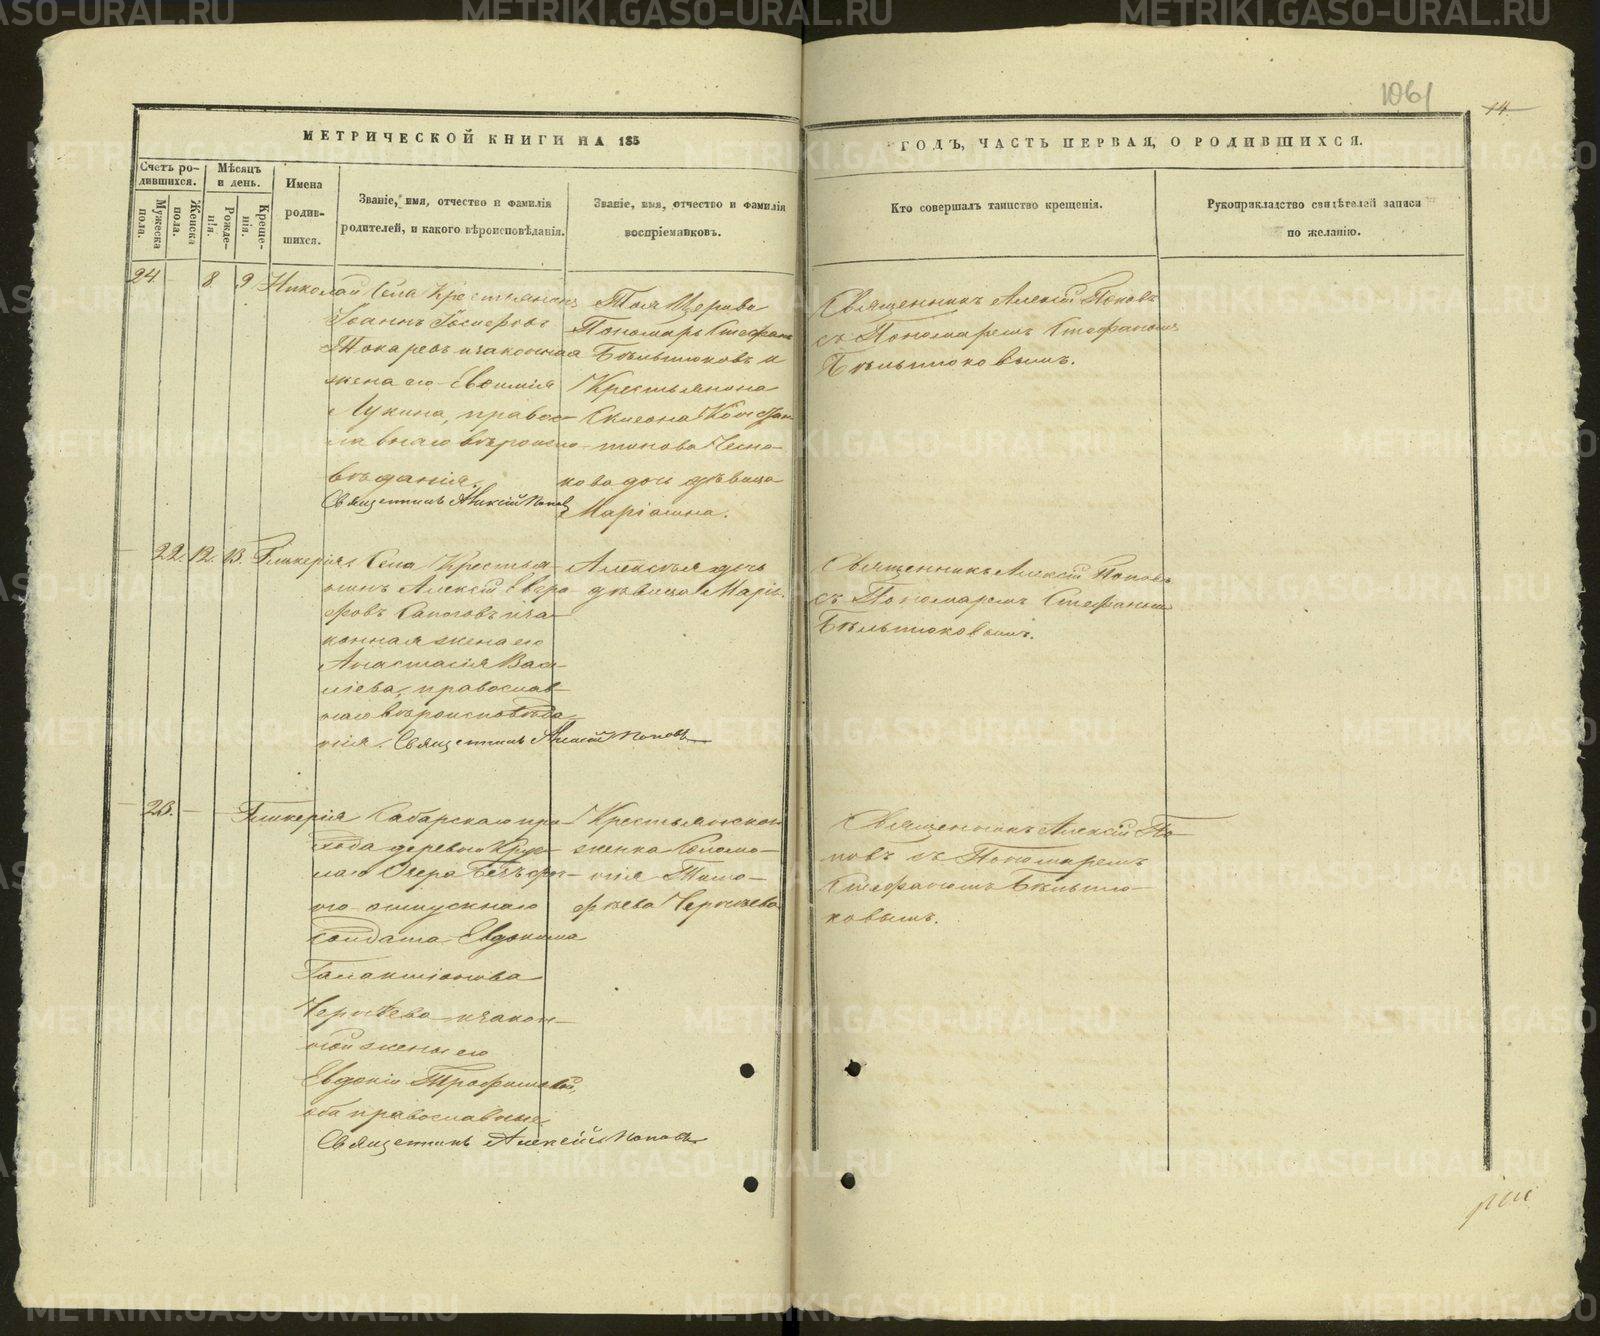 1061
14
МЕТРИЧЕСКОЙ КНИГИ НА 185
ГОДЪ, ЧАСТЬ ПЕРВАЯ, О РОДИВШИХСЯ.
Счетъ ро-
дившихся.
Мужеска
пола.
Женска
пола.
Мѣсяцъ
и день.
Рожде-
нія.
Креще-
нія.
Имена
родив-
шихся.
Званіе, имя, отчество и фамилія
родителей, и какого вѣроисповѣданія.
Званіе, имя, отчество и фамилія
воспріемниковъ.
Кто совершалъ таинство крещенія.
Рукоприкладство свидѣтелей записи
по желанію.
24. 8 9 Николай
Села Крестьянинъ
Іоаннъ
Токаревъ и законная
жена его Евфимія
Лукина, правос-
лавнаго вѣроиспо-
вѣданія.
Священникъ Алексій Поповъ
Тоя Церкви
Пономарь Стефанъ
Бѣльтюковъ и
Крестьянина
Симеона Констан-
тинова
кова дочь дѣвица
Маріамна.
Священникъ Алексій Поповъ
съ Пономаремъ Стефаномъ
Бѣльтюковымъ.
22. 12. 13. Гликерія
Села Крестья-
нинъ Алексій Евгра-
фовъ Сапоговъ и за-
конная жена его
Анастасія Васи-
лієва, православ-
наго вѣроисповѣда-
нія. Священникъ Алексій Поповъ
Алексѣя дочь
дѣвица Марія.
Священникъ Алексій Поповъ
съ Пономаремъ Стефаномъ
Бѣльтюковымъ.
23. Гликерія
Сабарскаго при-
хода деревни Круг-
лаго Озера Безсроч-
но-отпускнаго
солдата Евдокима
Галактіонова
и закон-
ной жены его
Евдокіи Трофимовой,
оба православные
Священникъ Алексій Поповъ
Крестьянская
женка Соломо-
нія Тимо-
фѣева
Священникъ Алексій По-
повъ съ Пономаремъ
Стефаномъ Бѣльтю-
ковымъ.
METRIKI.GASO-URAL.RU